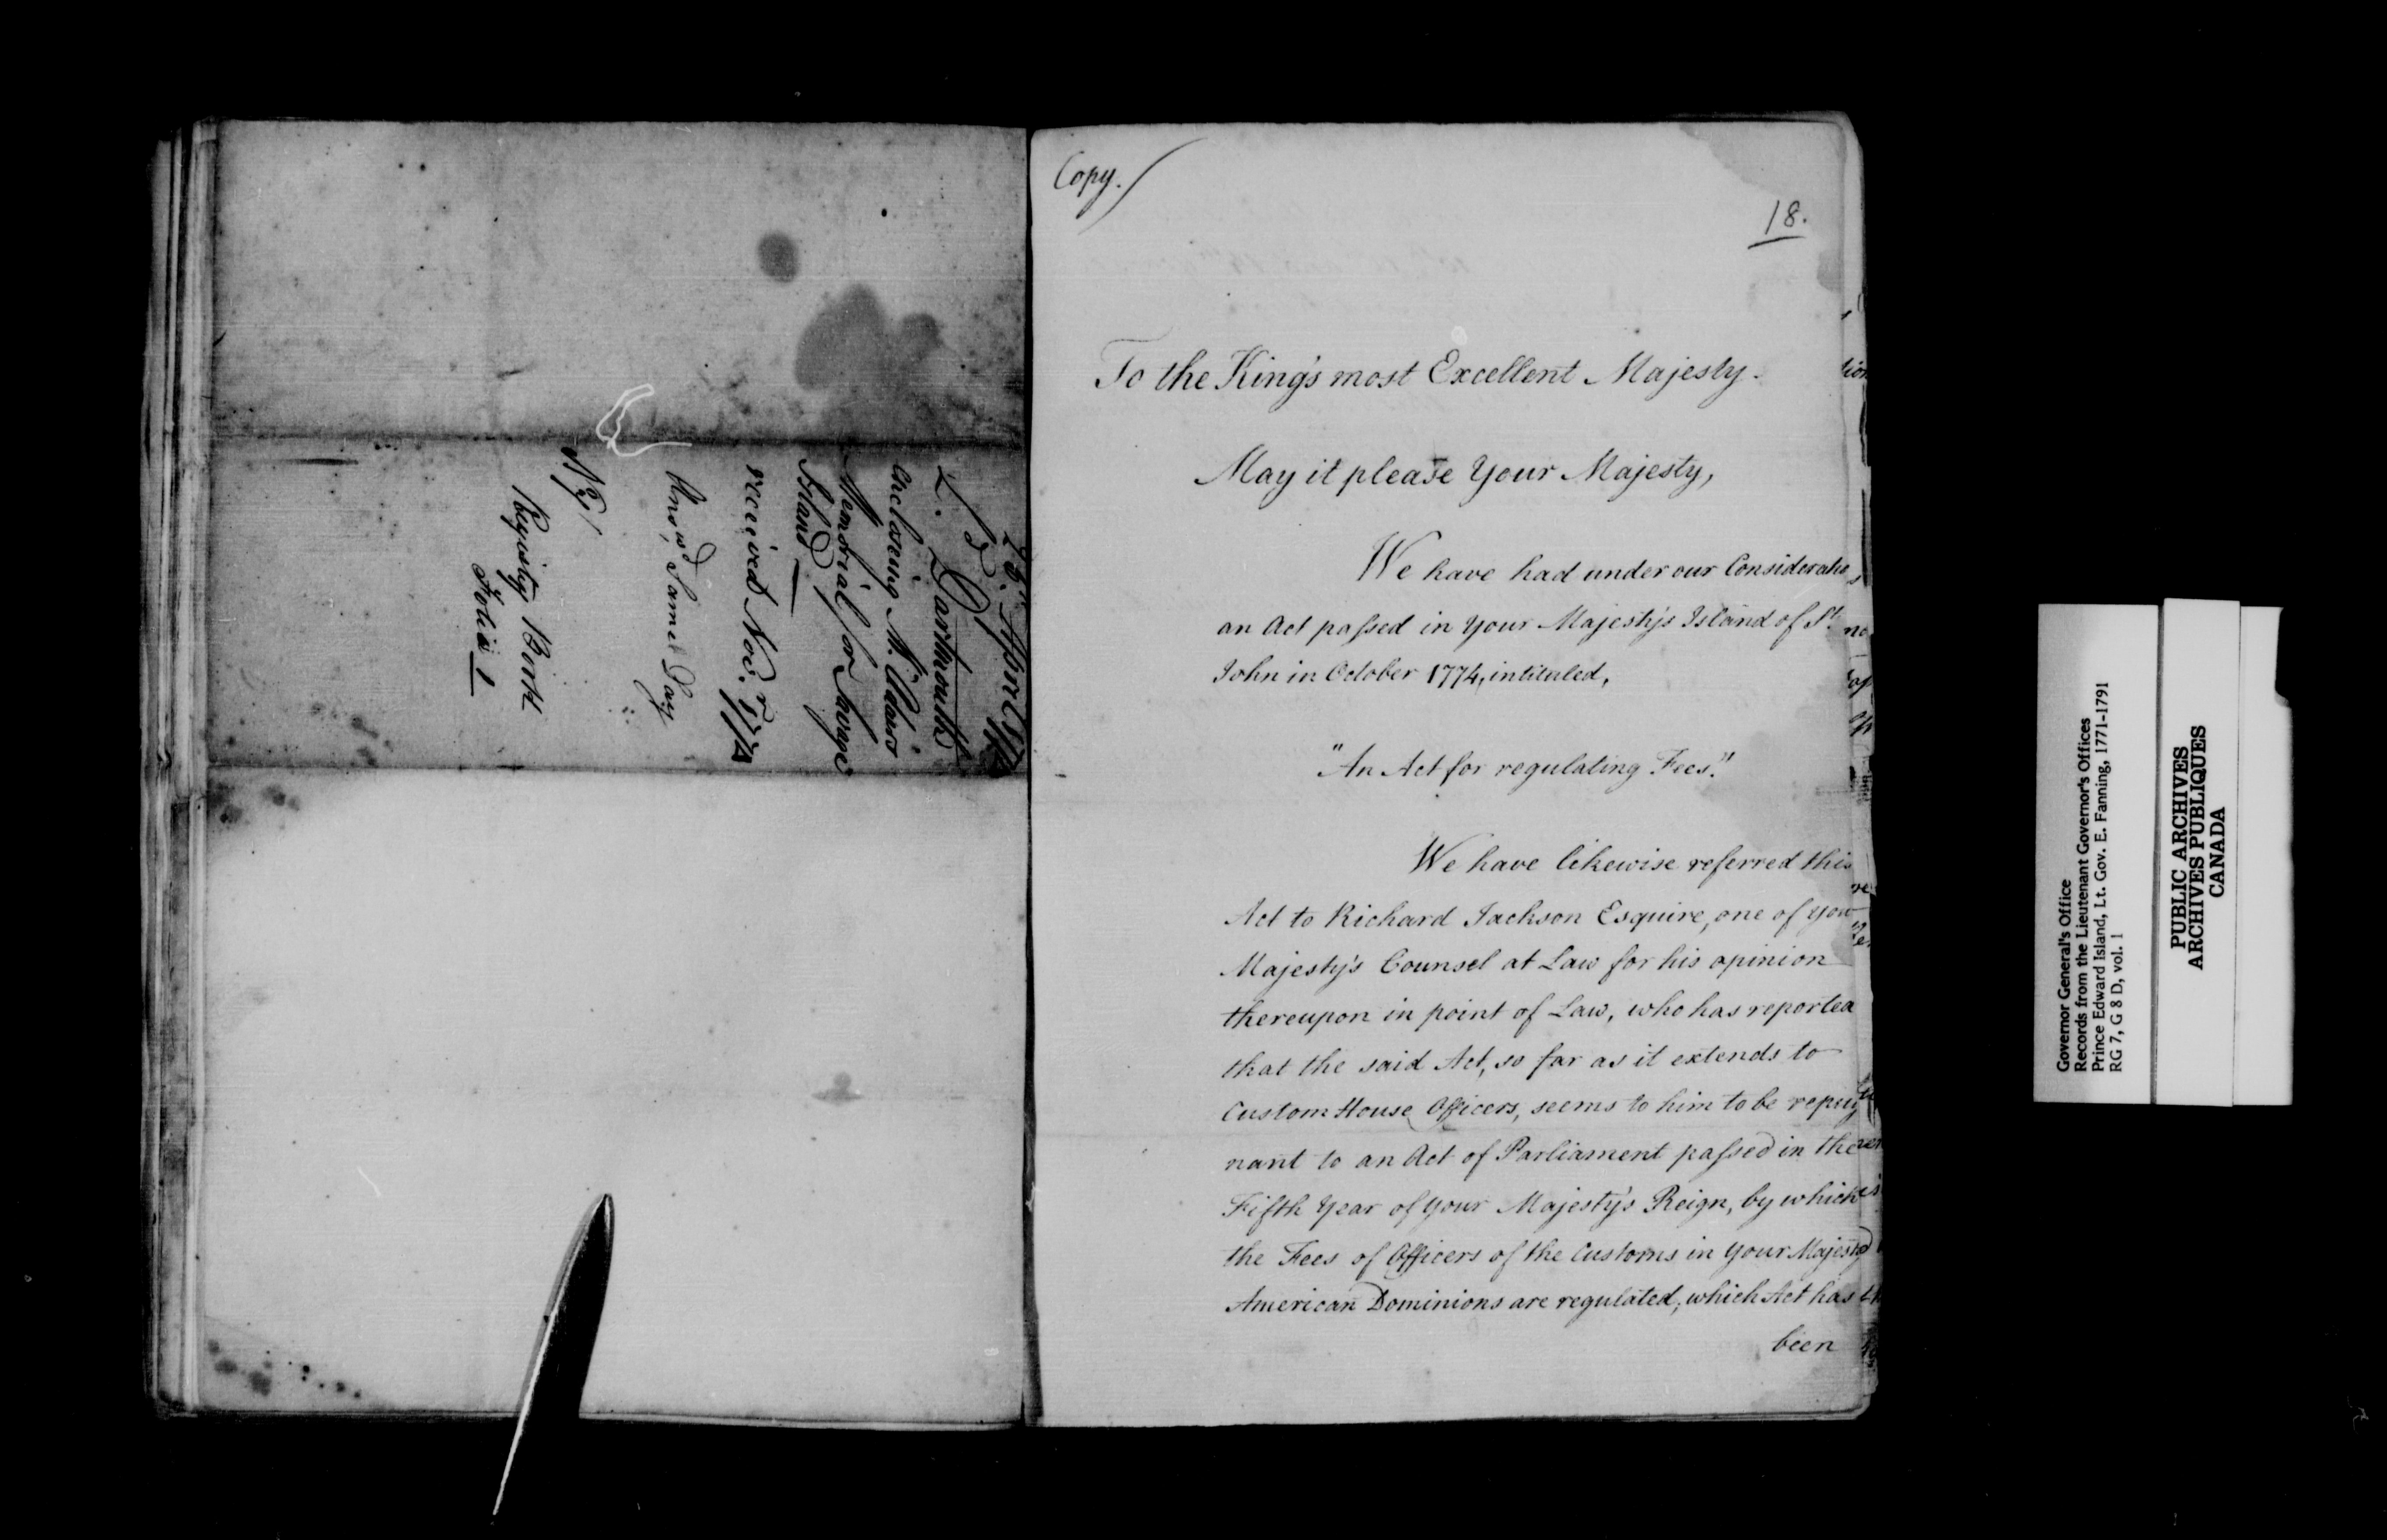 L. Dartmouth
Enclosing Mr.
Memorial for Savage
Island
received Novr. 1774
Answd. Same Day
No. 1
Registry Book
Folio 1
Copy.
18.
To the King's most Excellent Majesty.
May it please Your Majesty,
We have had under our Consideratio
an Act passed in Your Majesty's Island of St.
John in October 1774, intituled,
"An Act for regulating Fees."
We have likewise referred this
Act to Richard Jackson Esquire, one of your
Majesty's Counsel at Law for his opinion
thereupon in point of Law, who has reported
that the said Act, so far as it extends to
Custom House Officers, seems to him to be repug
nant to an Act of Parliament passed in the
Fifth Year of Your Majesty's Reign, by which
the Fees of Officers of the Customs in Your Majesty
American Dominions are regulated, which Act has
been
Governor General's Office
Records from the Lieutenant Governor's Offices
Prince Edward Island, Lt. Gov. E. Fanning, 1771-1791
RG 7, G 8 D, vol. 1
PUBLIC ARCHIVES
ARCHIVES PUBLIQUES
CANADA